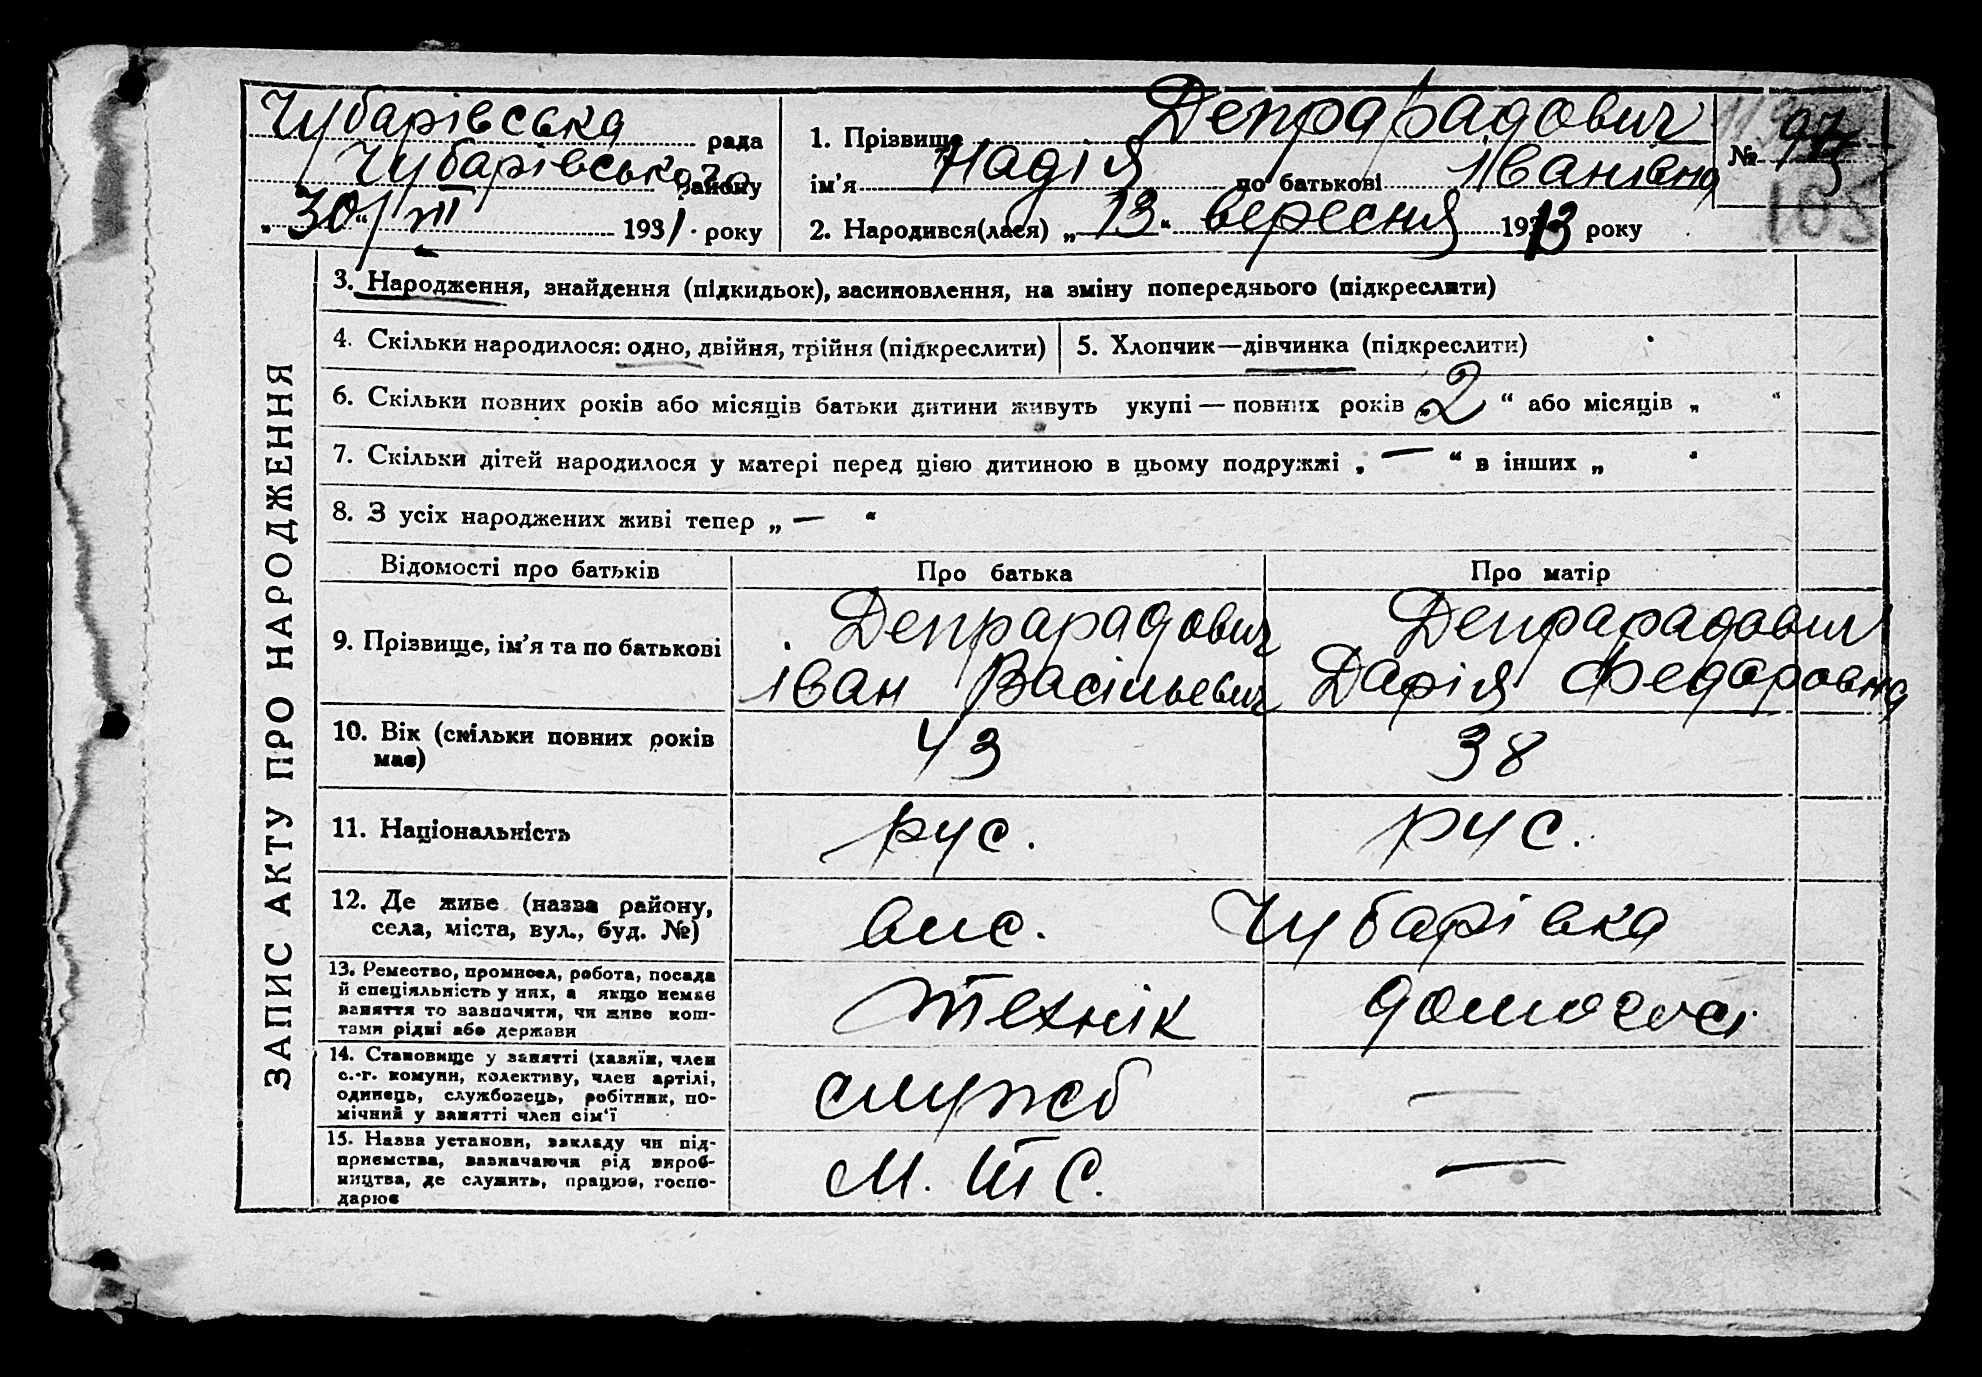 Чубарівська рада
Чубарівського району
„30“ III 1931. року
1. Прізвище Депрарадович
ім’я Надія по батькові Іванівна
№
105
2. Народився(лася) „13“ вересня 1913 року
ЗАПИС АКТУ ПРО НАРОДЖЕННЯ
3. Народження, знайдення (підкидьок), засиновлення, на зміну попереднього (підкреслити)
4. Скільки народилося: одно, двійня, трійня (підкреслити)
5. Хлопчик—дівчинка (підкреслити)
6. Скільки повних років або місяців батьки дитини живуть укупі — повних років „2“ або місяців „ “
7. Скільки дітей народилося у матері перед цією дитиною в цьому подружжі „—“ в інших „ “
8. З усіх народжених живі тепер „— “
Відомості про батьків
Про батька
Про матір
9. Прізвище, ім’я та по батькові
Депрарадович
Іван Васільевич
Депрарадович
Дарія Федоровна
10. Вік (скільки повних років
має)
43
38
11. Національність
рус.
рус.
12. Де живе (назва району,
села, міста, вул., буд. №)
вис. Чубарівка
13. Ремество, промисел, робота, посада
й спеціяльність у них, а якщо немає
заняття то зазначити, чи живе кош-
тами рідні або держави
технік
домогосп.
14. Становище у занятті (хазяїн, член
с.-г. комуни, колективу, член артілі,
одинець, службовець, робітник, по-
мічний у занятті член сім’ї
служб
—
15. Назва установи, закладу чи під-
приємства, зазначаючи рід вироб-
ництва, де служить, працює, госпо-
дарює
М. Т С.
—